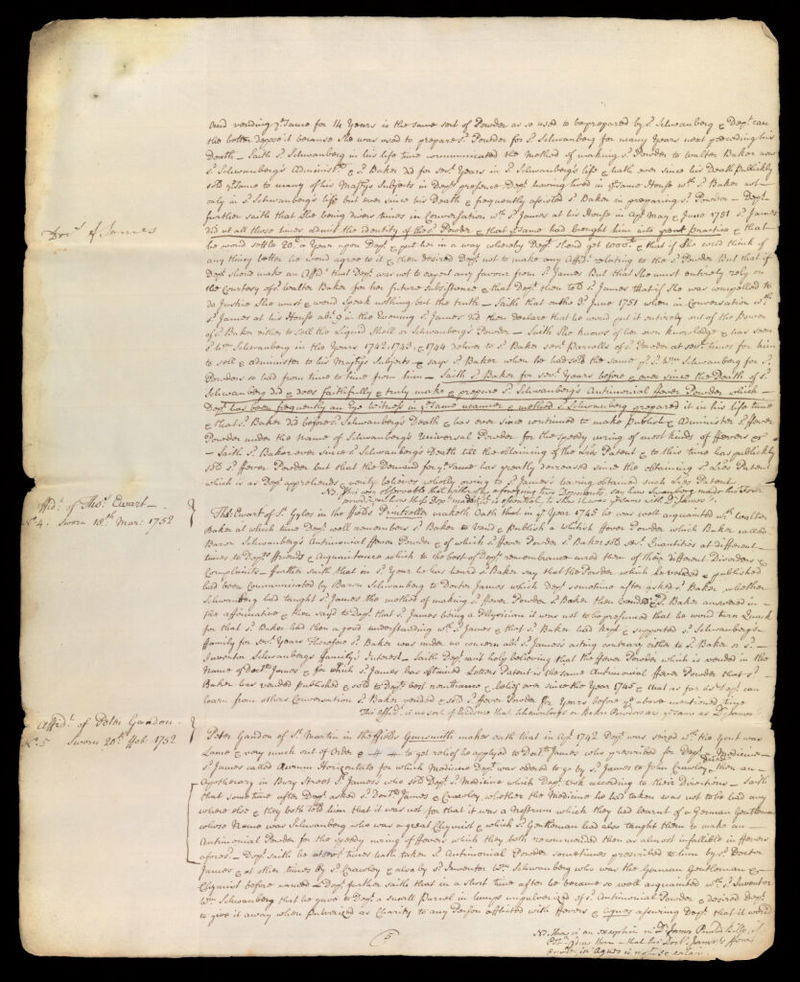 and vending ye same for 14 Years is the same sort of Powder as so used to be prepared by sd. Schwanberg & Depts. can
the better depose it because She was used to prepare sd. Powder for sd. Schwanberg for many Years next preceding his
Death – Saith sd. Schwanberg in his life time communicated the Method of making sd. Powder to Walter Baker now
sd. Schwanbergs Administr. & sd. Baker did for sevl. Years in sd. Schwanberg's life & hath ever since his Death publickly
sold ye same to many of his Majtys Subjects in Depts. presence Dept. having lived in ye same House wth. sd. Baker not
only in sd. Schwanbergs life but ever since his Death & frequently assisted sd. Baker in preparing sd. Powder – Dept.
further saith that She being divers times in Conversation wth. sd. James at his House in Apl. May & June 1751 sd. James
Drs. of James
did at all those times admit the identity of the sd. Powder & that ye same had brought him into great practice & that
he would settle 20£ a Year upon Dept. & put her in a way whereby Dept. should get & that if She could think of
any thing better he would agree to it & then desired Dept. not to make any Affidt. relating to the sd. Powder But that if
Dept. should make an Affidt. that Dept. was not to expect any favour from sd. James But that She must entirely rely on
the Courtesy of sd. Walter Baker for her future subsistence & that Dept. then told sd. James that if She was compelled to
do Justice She must & would speak nothing but the truth – Saith that on the 3d. June 1751 when in Conversation wth.
sd. James at his House abt. 9 in the Evening sd. James did then declare that he would put it entirely out of the power
of sd. Baker either to sell the Liquid Shell or Schwanberg's Powder – Saith She knows of her own knowledge & has seen
sd. Wm. Schwanberg in the Years 1742. 1743 & 1744 deliver to sd. Baker sevl. Parcells of sd. Powder at sevl. times for him
to sell & administer to his Majtys Subjects & says sd. Baker when he had sold the same pd. sd. Wm. Schwanberg for sd.
Powders so had from time to time from him – Saith sd. Baker for sevl. Years before & ever since the Death of sd.
Schwanberg did & does faithfully & truly make & prepare sd. Schwanbergs Antimonial Fever Powder which
Dept. has been frequently an Eye Witness in ye same manner & method sd. Schwanberg prepared it in his life time
& that sd. Baker did before sd. Schwanberg's Death & has ever since continued to make publish & Administer sd. Fever
Powder under the Name of Schwanberg's Universal Powder for the speedy curing of most kinds of Fevers &c
– Saith sd. Baker ever since sd. Schwanberg's Death till the obtaining of the Lres Patent & to this time has publickly
sold sd. Fever Powder but that the Demand for ye same has greatly decreased since the obtaining sd. Lres Patent
which is as Dept. apprehends & verily believes wholly owing to sd. James's having obtained such Lres Patent
Affidt. of Thos. Ewart –
No. 4. Sworn 18th. Mar. 1752
Thos. Ewart of St. Gyles in the Fields Printseller maketh Oath that in ye Year 1745 he was well acquainted wth. Walter
Baker at which time Dept. well remembers sd. Baker to vend & publish a whitish Fever Powder which Baker called
Baron Schwanbergs Antimonial Fever Powder & of which sd. Fever Powder sd. Baker sold sevl. Quantities at different
times to Depts. Friends & Acquaintance which to the best of Depts. remembrance cured them of their different Disorders &
Complaints – further saith that in sd. Year he has heard sd. Baker say that the Powder which he vended & published
had been communicated by Baron Schwanberg to Doctor James which Dept. sometime after asked sd. Baker whether
Schwanberg had taught sd. James the method of making sd. Fever Powder sd. Baker answered in
the affirmative & then sayd to Dept. that sd. James being a Physician it was not to be presumed that he would turn Quack
for that sd. Baker had then a good understanding wth. sd. James & that sd. Baker had kept & supported sd. Schwanberg's
Family for sevl. Years Therefore sd. Baker was under no concern abt. sd. James acting contrary either to sd. Baker or sd.
Inventor Schwanbergs family's Interest – Saith Dept. verily believing that the Fever Powder which is vended in the
Name of Doctr. James & for which sd. James has obtained Letters Patent is the same Antimonial Fever Powder that sd.
Baker has vended published & sold to Depts. best rembrance & belief ever since the Year 1745 & that as far as Dept. can
learn from others Conversation sd. Baker vended & sold sd. Fever Powder for Years before ye above mentioned time
Affidt. of Peter Gandon.
No. 5 Sworn 20th. Feb. 1752
Peter Gandon of St. Martin in the Fields Gunsmith makes oath that in Apl. 1742 Dept. was seized wth. the Gout was
Lame & very much out of Order & to get relief he applyed to Doctr. James who prescribed for Dept. a Medicine
sd. James called Aurum Horizontale for which Medicine Dept. was ordered to go by sd. James to John Crawley then an
Apothecary in Bury Street St. James's who sold Dept. sd. Medicine which Dept. took according to their Directions – Saith
that some time after Dept. asked sd. Doctr. James & Crawley whether the Medicine he had taken was not to be had any
where else & they both told him that it was not for that it was a Nostrum which they had learnt of a German Gentleman
whose Name was Schwanberg who was a great Chymist & which sd. Gentleman had also taught them to make an
Antimonial Powder for the speedy curing of Fevers which they both recommended then as almost infallible in Fevers
afores. – Dept. saith he at sevl. times hath taken sd. Antimonial Powder sometimes prescribed to him by sd. Doctor
James & at other times by sd. Crawley & also by sd. Inventor Wm. Schwanberg who was the German Gentleman &
Chymist before named – Dept. further saith that in a short time after he became so well acquainted wth. sd. Inventor
Wm. Schwanberg that he gave to Dept. a small Parcel in lumps unpulverized of sd. Antimonial Powder & desired Dept.
to give it away when pulverized as Charity to any Person afflicted with Fevers & Agues assuring Dept. that it would
5